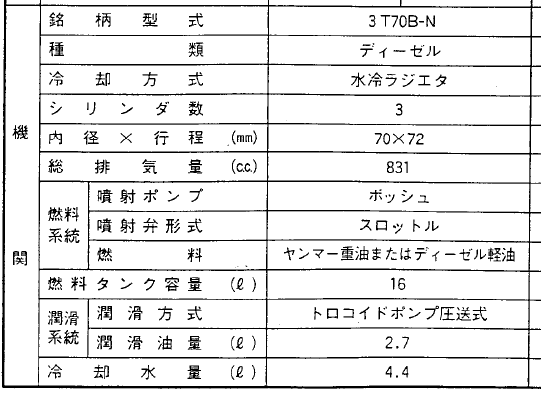 機関
銘柄型式 3T70B-N
種類 ディーゼル
冷却方式 水冷ラジエタ
シリンダ数 3
内径×行程 (mm) 70×72
総排気量 (c.c.) 831
燃料系統
噴射ポンプ ボッシュ
噴射弁形式 スロットル
燃料 ヤンマー重油またはディーゼル軽油
燃料タンク容量 (ℓ) 16
潤滑系統
潤滑方式 トロコイドポンプ圧送式
潤滑油量 (ℓ) 2.7
冷却水量 (ℓ) 4.4